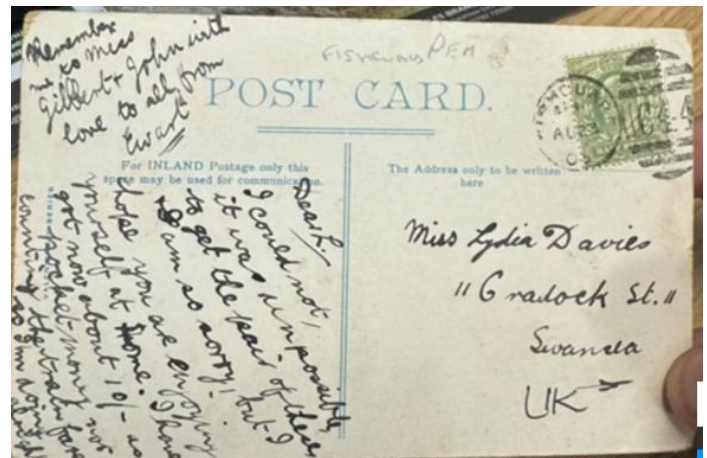 Remember
me to Miss
Gilbert & John with
love to all from
Ewart
FISHGUARD PEM
POST CARD.
For INLAND Postage only this
space may be used for communication.
The Address only to be written
here
Dear L.
I could not,
it was impossible
to get the pair of these,
I am so sorry, but I
hope you are enjoying
yourself at home. I have
got now about 10/- as
pocket money not
counting the train fare
so I'm doing
alright
Miss Lydia Davies
11 Cradock St.
Swansea
UK